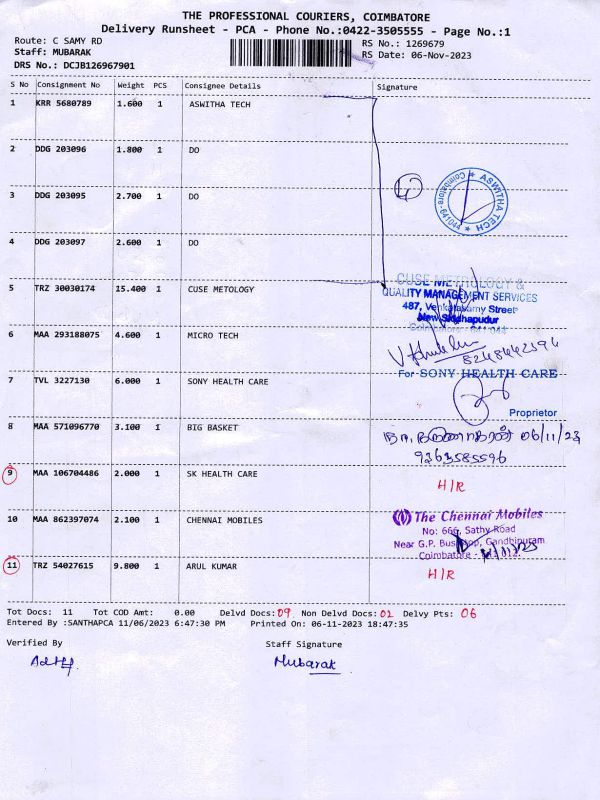 THE PROFESSIONAL COURIERS, COIMBATORE
Delivery Runsheet - PCA - Phone No.:0422-3505555 - Page No.:1
Route: C SAMY RD
RS No.: 1269679
Staff: MUBARAK
RS Date: 06-Nov-2023
DRS No.: DCJB126967901
S No Consignment No Weight PCS Consignee Details Signature
1 KRR 5680789 1.600 1 ASWITHA TECH
2 DDG 203096 1.800 1 DO
ASWITHA TECH ★ Coimbatore-641044 ★
3 DDG 203095 2.700 1 DO
4 DDG 203097 2.600 1 DO
CUSE METROLOGY &
5 TRZ 30030174 15.400 1 CUSE METOLOGY
QUALITY MANAGEMENT SERVICES
487, Venkatasamy Street
New Siddhapudur
Coimbatore - 641 044
6 MAA 293188075 4.600 1 MICRO TECH
For SONY HEALTH CARE
7 TVL 3227130 6.000 1 SONY HEALTH CARE
Proprietor
8 MAA 571096770 3.100 1 BIG BASKET
06/11/23
9363585596
9 MAA 106704486 2.000 1 SK HEALTH CARE H/R
10 MAA 862397074 2.100 1 CHENNAI MOBILES
The Chennai Mobiles
No: 666, Sathy Road
Near G.P. Bus Stop, Gandhipuram
Coimbatore
11 TRZ 54027615 9.800 1 ARUL KUMAR H/R
Tot Docs: 11 Tot COD Amt: 0.00 Delvd Docs:09 Non Delvd Docs:01 Delvy Pts: 06
Entered By :SANTHAPCA 11/06/2023 6:47:30 PM Printed On: 06-11-2023 18:47:35
Verified By Staff Signature
Mubarak